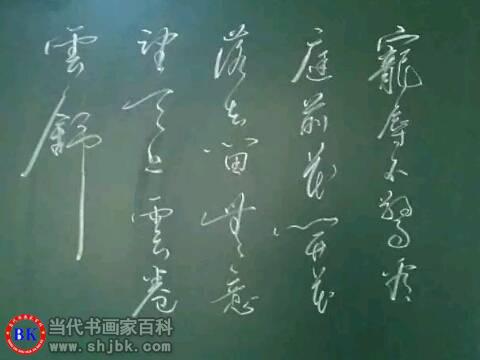 寵辱不驚看
庭前花開花
落去留無意
望天上雲卷
雲舒
BK
当代书画家百科
www.shjbk.com